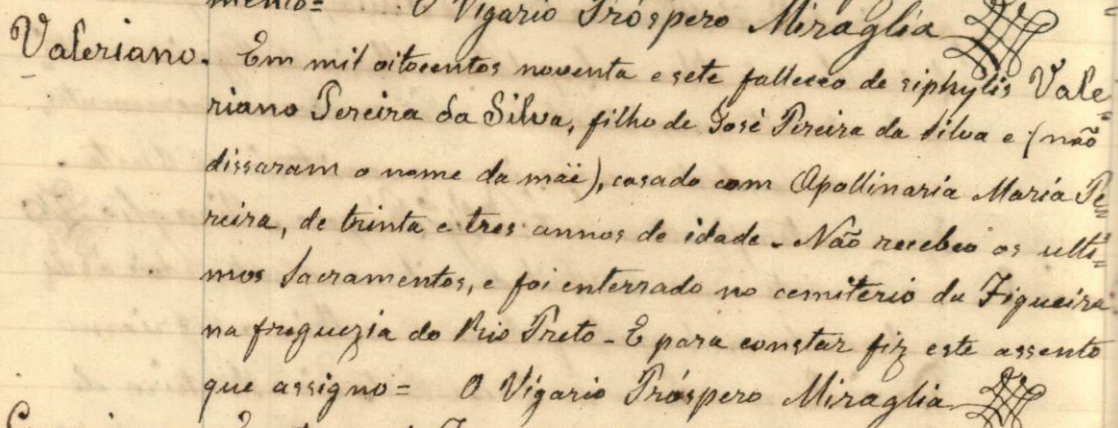 mento= O Vigario Próspero Miraglia
Valeriano. Em mil oitocentos noventa e sete falleceo de siphylis Vale=
riano Pereira da Silva, filho de José Pereira da Silva e (não
dissaram o nome da mãe), casado com Apollinaria Maria Pe=
reira, de trinta e tres annos de idade. Não recebeo os ulti=
mos Sacramentos, e foi enterrado no cemiterio da Figueira
na freguezia do Rio Preto. E para constar fiz este assento
que assigno= O Vigario Próspero Miraglia